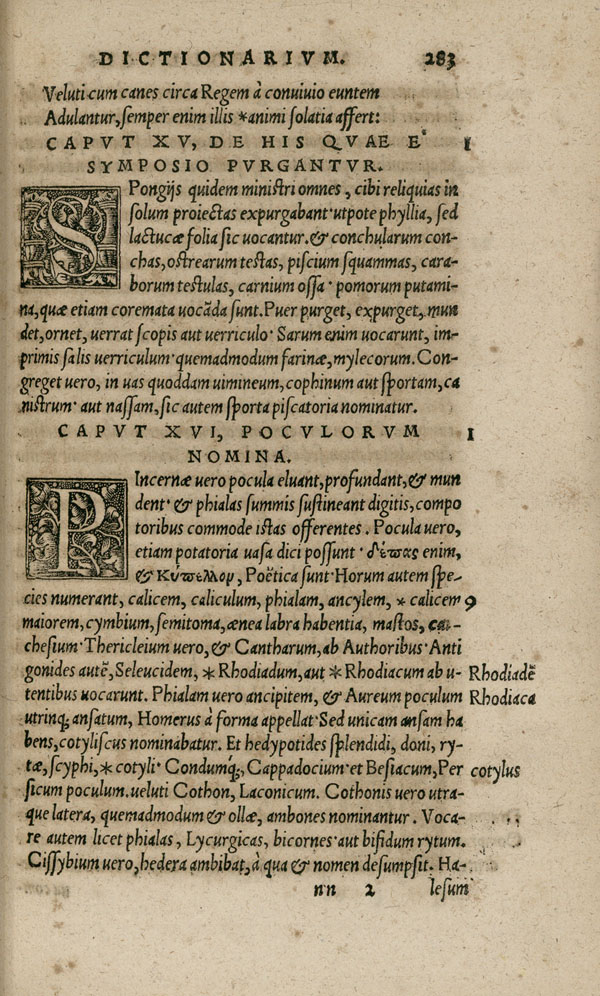 DICTIONARIVM. 283
Veluti cum canes circa Regem à conuiuio euntem
Adulantur, ſemper enim illis *animi ſolatia affert:
CAPVT XV, DE HIS QVAE E' I
SYMPOSIO PVRGANTVR.
SPongijs quidem miniſtri omnes, cibi reliquias in
ſolum proiectas expurgabant·utpote phyllia, ſed
lactucæ folia ſic uocantur.& conchularum con-
chas, oſtrearum teſtas, piſcium ſquammas, cara-
borum teſtulas, carnium oſſa · pomorum putami-
na, quæ etiam coremata uocāda ſunt. Puer purget, expurget, mun
det, ornet, uerrat ſcopis aut uerriculo· Sarum enim uocarunt, im-
primis ſalis uerriculum·quemadmodum farinæ, mylecorum. Con-
greget uero, in uas quoddam uimineum, cophinum aut ſportam, ca
niſtrum· aut naſſam, ſic autem ſporta piſcatoria nominatur.
CAPVT XVI, POCVLORVM I
NOMINA.
PIncernæ uero pocula eluant, profundant, & mun
dent· & phialas ſummis ſuſtineant digitis, compo
toribus commode iſtas offerentes. Pocula uero,
etiam potatoria uaſa dici poſſunt · δέπας enim,
& Κύπελλον, Poëtica ſunt·Horum autem ſpe-
cies numerant, calicem, caliculum, phialam, ancylem, * calicem 9
maiorem, cymbium, ſemitoma, ænea labra habentia, maſtos, ca-
cheſium·Thericleium uero, & Cantharum, ab Authoribus·Anti
gonides autē, Seleucidem, *Rhodiadum, aut *Rhodiacum ab u- Rhodiadē
tentibus uocarunt. Phialam uero ancipitem, & Aureum poculum Rhodiaca
utrinq; anſatum, Homerus à forma appellat·Sed unicam anſam ha
bens, cotyliſcus nominabatur. Et hedypotides ſplendidi, doni, ry-
tæ, ſcyphi, * cotyli· Condumq́;, Cappadocium·et Beſiacum, Per cotylus
ſicum poculum.ueluti Cothon, Laconicum. Cothonis uero utra-
que latera, quemadmodum & ollæ, ambones nominantur. Voca-
re autem licet phialas, Lycurgicas, bicornes·aut bifidum rytum.
Ciſſybium uero, hedera ambibat, à qua & nomen deſumpſit. Ha-
nn 2 leſum